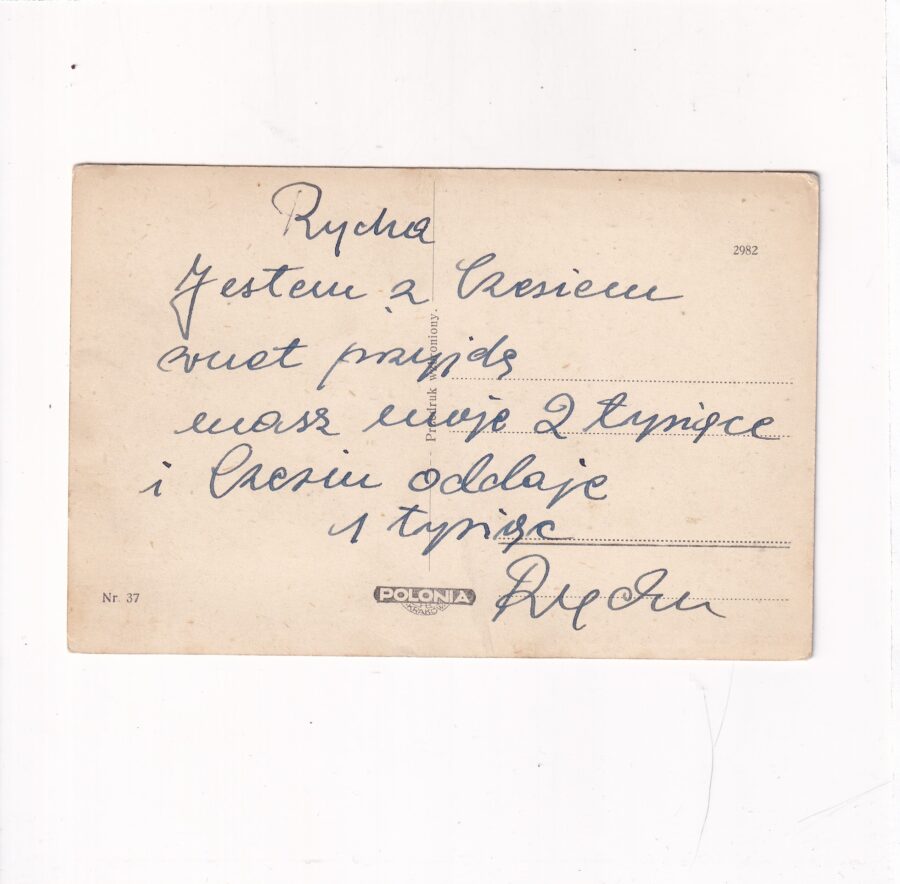 Rycha
2982
Jestem z Czesiem
wnet przyjdę
masz moje 2 tysiące
i Czesiu oddaje
1 tysiąc
Rychu
Przedruk wzbroniony.
Nr. 37
POLONIA
KRAKÓW